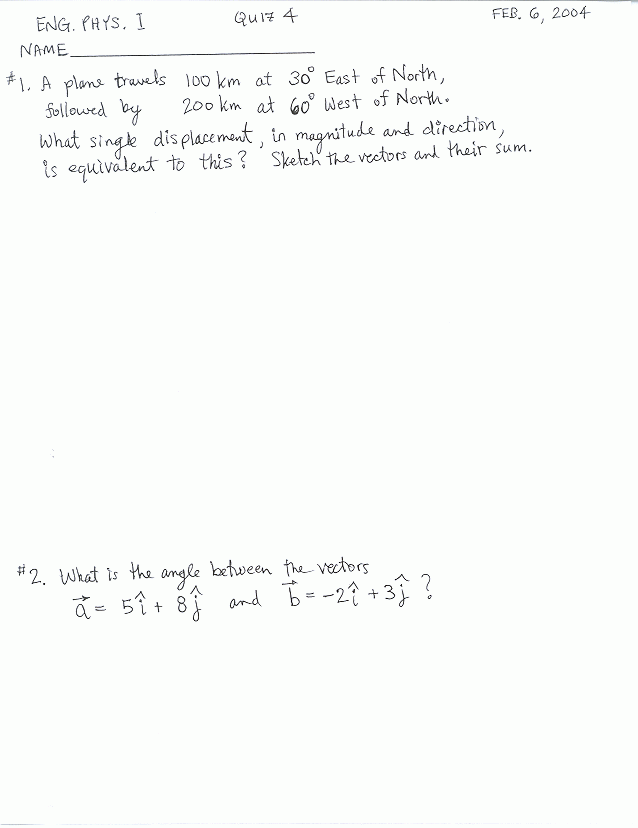 ENG. PHYS. I QUIZ 4 FEB. 6, 2004
NAME
#1. A plane travels 100 km at 30° East of North,
followed by 200 km at 60° West of North.
What single displacement, in magnitude and direction,
is equivalent to this? Sketch the vectors and their sum.
#2. What is the angle between the vectors
a⃗ = 5î + 8ĵ and b⃗ = -2î + 3ĵ ?